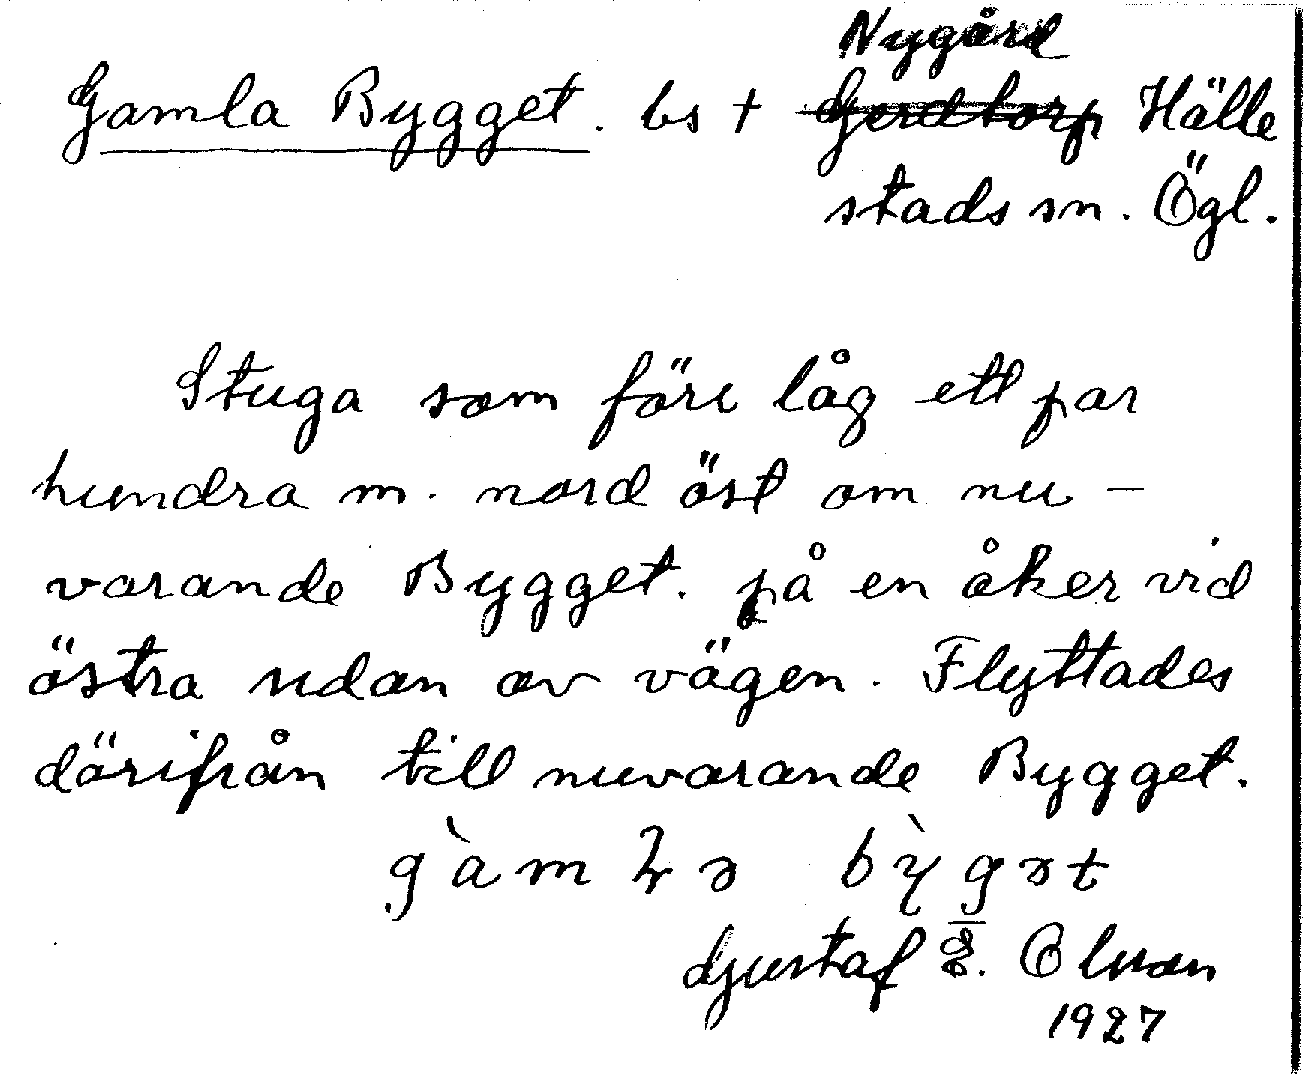 Nygård
Gamla Bygget. bs † Gerdtorp Hälle
stads sn. Ögl.
Stuga som före låg ett par
hundra m. nord öst om nu-
varande Bygget. på en åker vid
östra sidan av vägen. Flyttades
därifrån till nuvarande Bygget.
Gustaf E. Olson
1927